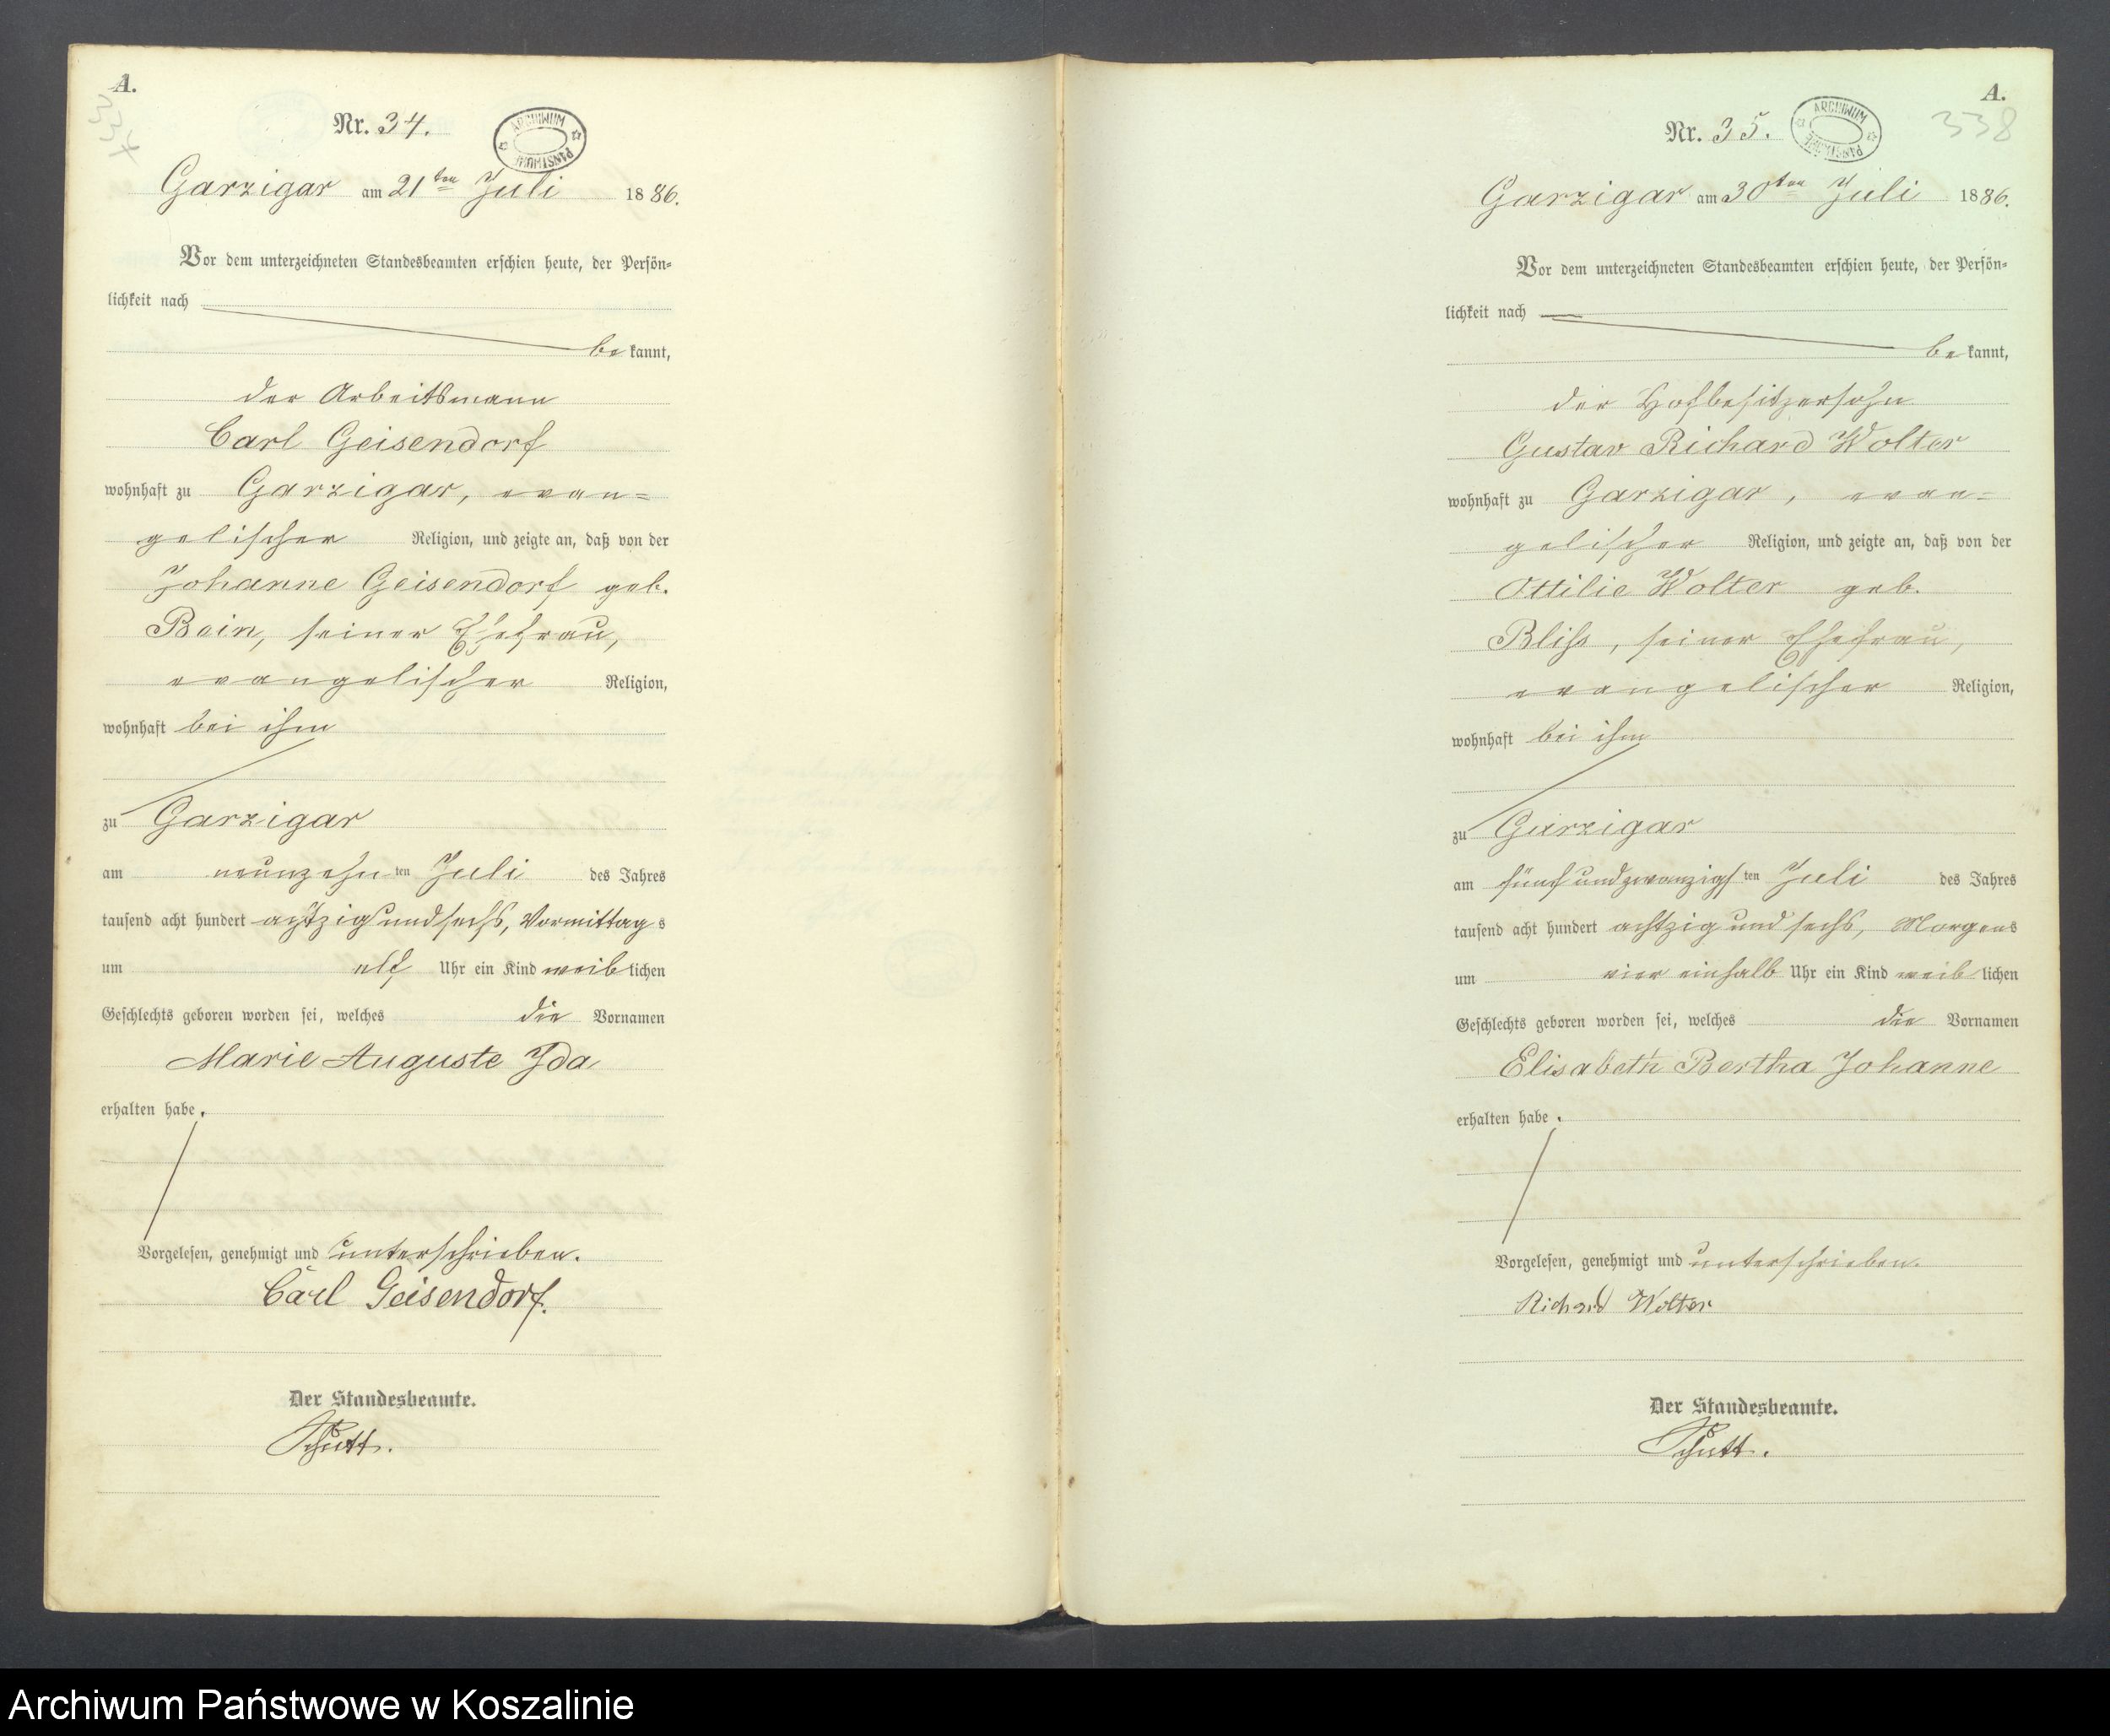 A.
334
Nr. 34.
ARCHIWUM PAŃSTWOWE
Garzigar am 21ten Juli 1886.
Vor dem unterzeichneten Standesbeamten erschien heute, der Persön=
lichkeit nach
bekannt,
der Arbeitsmann
Carl Geisendorf
wohnhaft zu Garzigar, evan=
gelischer Religion, und zeigte an, daß von der
Johanne Geisendorf geb.
Bein, seiner Ehefrau,
evangelischer Religion,
wohnhaft bei ihm
zu Garzigar
am neunzehnten Juli des Jahres
tausend acht hundert achtzig und sechs, Vormittags
um elf Uhr ein Kind weiblichen
Geschlechts geboren worden sei, welches die Vornamen
Marie Auguste Ida
erhalten habe.
Vorgelesen, genehmigt und unterschrieben.
Carl Geisendorf.
Der Standesbeamte.
A.
338
Nr. 35.
ARCHIWUM PAŃSTWOWE
Garzigar am 30ten Juli 1886.
Vor dem unterzeichneten Standesbeamten erschien heute, der Persön=
lichkeit nach
bekannt,
der Hofbesitzersohn
Gustav Richard Wolter
wohnhaft zu Garzigar, evan=
gelischer Religion, und zeigte an, daß von der
Ottilie Wolter geb.
Bliss, seiner Ehefrau,
evangelischer Religion,
wohnhaft bei ihm
zu Garzigar
am fünf und zwanzigsten Juli des Jahres
tausend acht hundert achtzig und sechs, Morgens
um vier einhalb Uhr ein Kind weiblichen
Geschlechts geboren worden sei, welches die Vornamen
Elisabeth Bertha Johanne
erhalten habe.
Vorgelesen, genehmigt und unterschrieben.
Richard Wolter
Der Standesbeamte.
Archiwum Państwowe w Koszalinie